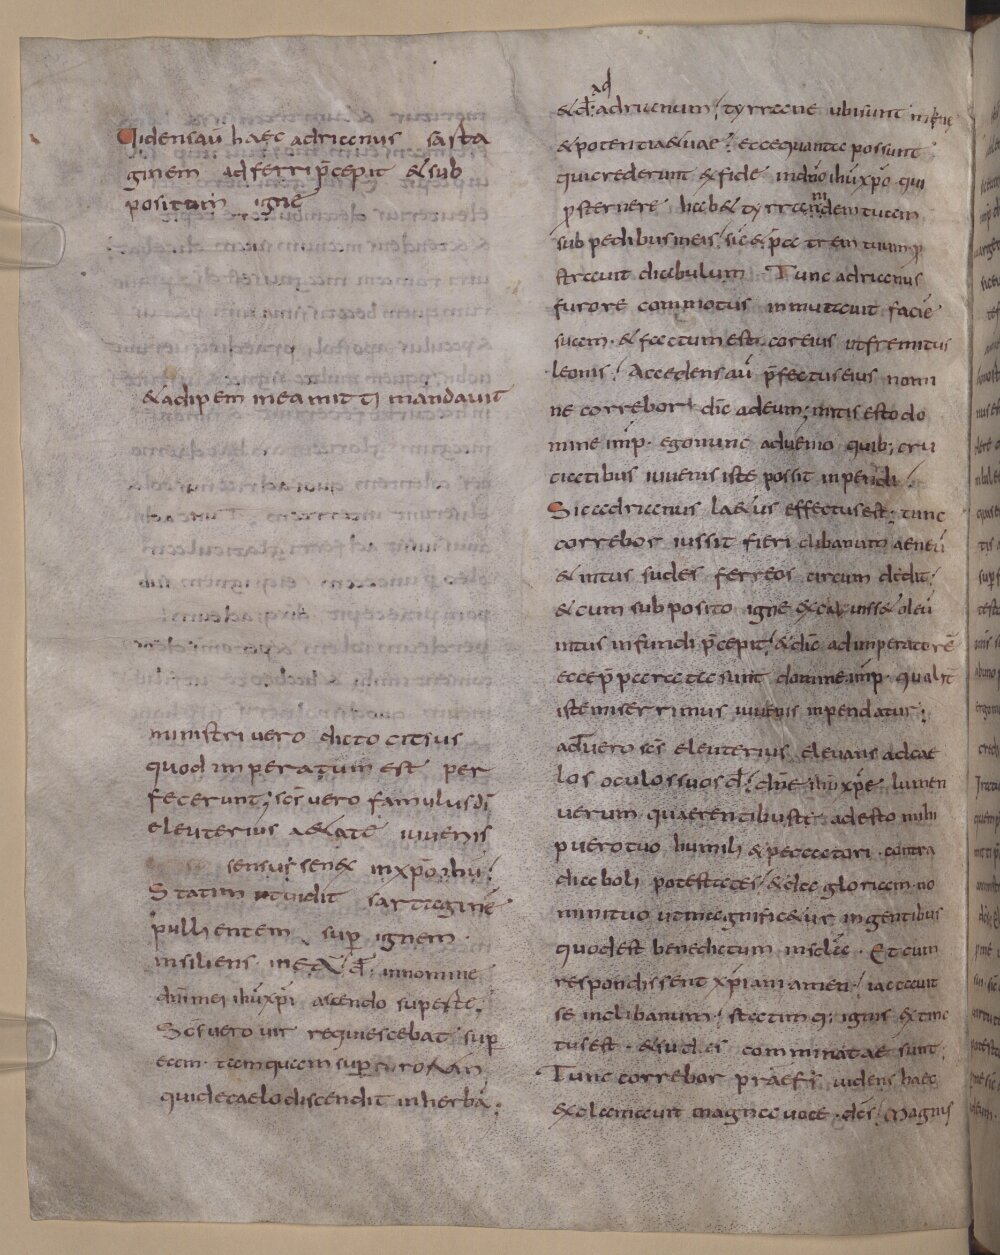 Uidens au̅ haec adrianus sarta
ginem adferri p̅cepit & sub
positum igne̅
& adipem inea mitti mandauit
ministri uero dicto citius
quod imperatum est per
fecerunt; sc̅s uero famulus di̅
eleuterius aetate iuuenis
sensus senex in xp̅o ihu̅;
Statim ut uidit sartagine̅
pullientem sup ignem
insiliens in ea̅ d̅; in nomine
dni̅ mei ihu̅ xp̅i ascendo super te;
Sc̅s uero uir requiescebat sup
eam tamquam sup rorem
qui de caelo discendit in herba̅;
& d̅; ad adrianum; tyranne ubi sunt minae
& potentia & uae; ecce quanta possunt
qui crederunt ex fide in dno̅ ihu̅ xp̅o qui
psternere habet tyrannidem tuam
sub pedibus meis; sic & p̅ce trem tuum p
strauit diabulum. Tunc adrianus
furore commotus inmutauit facie̅
suam. & factum est cor eius ut fremitus
leonis; Accedens au̅ p̅fectus eius nomi
ne correbor dic̅ ad eum; mitis esto do
mine imp. ego nunc aduenio quib; cru
ciatibus iuuenis iste possit inpendi;
Sic adrianus laetus effectus est; tunc
correbor iussit fieri clibanum aeneu̅
& intus sudes ferreos circum dedit;
& cum sub posito igne excaluisset oleu̅
intus infundi p̅cepit; & dic̅ ad imperatore̅
ecce p̅parata sunt domine imp. qualit̅
iste miserrimus iuuenis inpendatur;
ad̅ uero sc̅s eleuterius eleuans ad cae
los oculos suos d̅; dne̅ ihu̅ xp̅e; lumen
uerum quaerentibus te adesto mihi
puero tuo humili & peccatori contra
diaboli potestates; & da gloriam no
mini tuo ut magnificetur in gentibus
quod est benedictum in sclā. Et cum
respondissent xp̅iani amen; iactauit
se in clibanum; statimq; ignis extinc
tus est. & sudes comminatae sunt;
Tunc correbor praef̅; uidens haec
exclamauit magna uoce dc̅s; Magnus